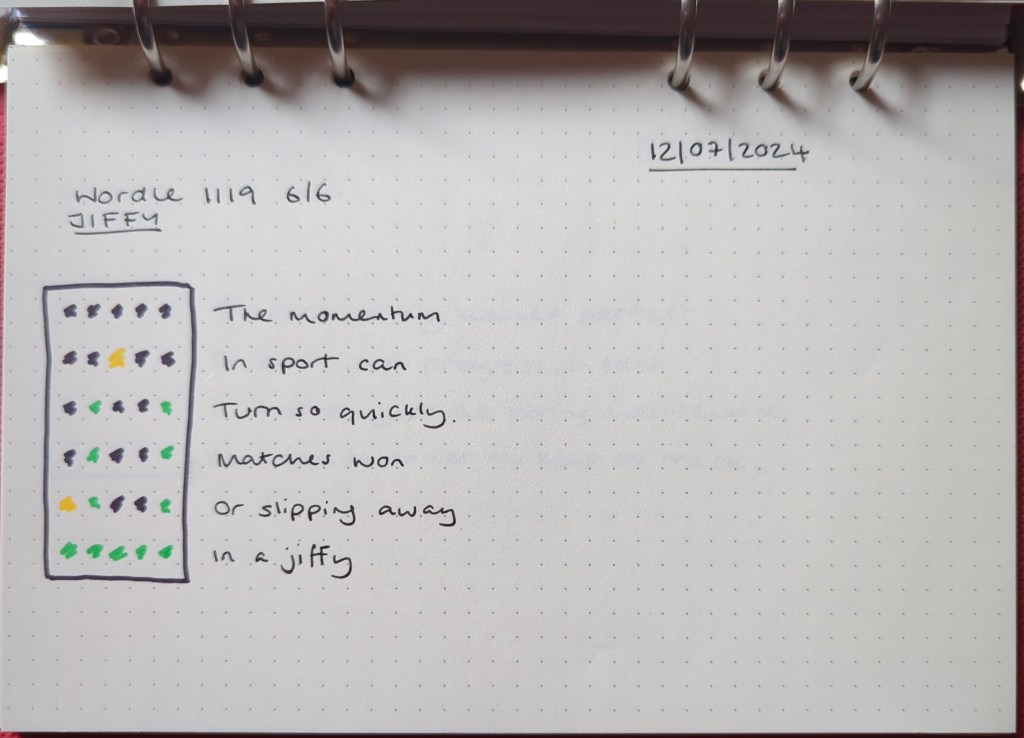 12/07/2024
Wordle 1119 6/6
JIFFY
The momentum
In sport can
Turn so quickly.
Matches won
Or slipping away
In a jiffy